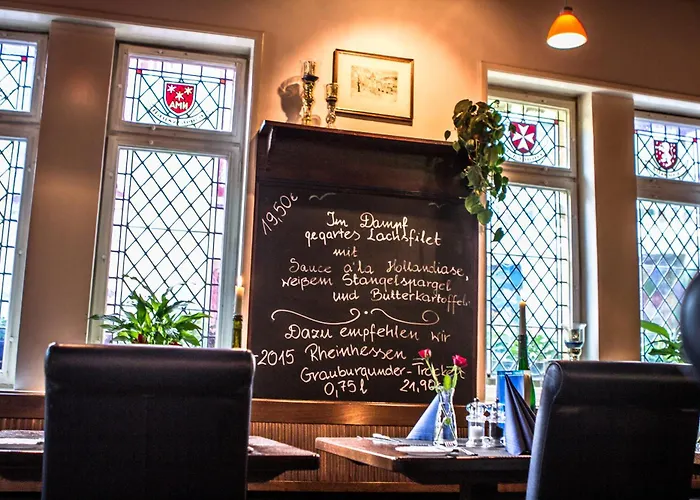 AMH
19,50€
Im Dampf
gegartes Lachsfilet
mit
Sauce á la Hollandiase,
weißem Stangelspargel
und Butterkartoffeln
Dazu empfehlen wir
-2015 Rheinhessen
Grauburgunder-Trocken
0,75l 21,90€